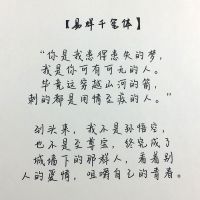 【易烊千玺体】
“你是我患得患失的梦，
我是你可有可无的人。
毕竟这穿越山河的箭，
刺的都是用情至疾的人。”
到头来，我不是孙悟空，
也不是至尊宝，终究成了
城墙下的那群人，看着别
人的爱情，咀嚼自己的青春。